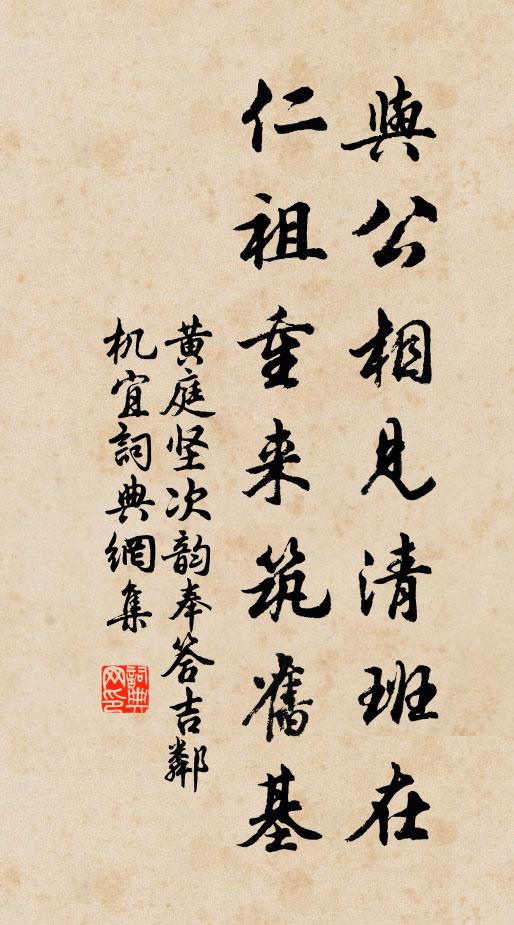 與公相見清班在
仁祖重来筑舊基
黄庭坚次韵奉答吉鄰
机宜詞典網集
詞典
网印